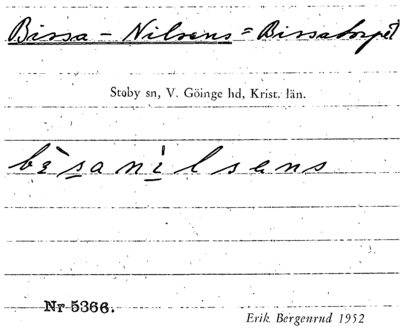 Bissa - Nilsens = Bissatorpet
Stoby sn, V. Göinge hd, Krist. län.
bèsanilsens
Nr 5366.
Erik Bergenrud 1952